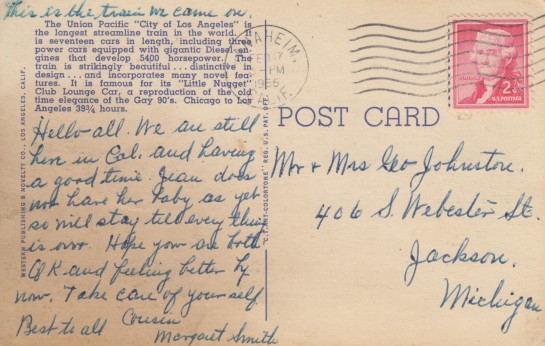 This is the train we came on.
The Union Pacific "City of Los Angeles" is
the longest streamline train in the world. It
is seventeen cars in length, including three
power cars equipped with gigantic Diesel en-
gines that develop 5400 horsepower. The
train is strikingly beautiful...distinctive in
design...and incorporates many novel fea-
tures. It is famous for its "Little Nugget"
Club Lounge Car, a reproduction of the old
time elegance of the Gay 90's. Chicago to Los
Angeles 39¾ hours.
Hello all. We are still
here in Cal. and having
a good time. Jean does
not have her baby as yet
so will stay till every thing
is over. Hope you are both
O K and feeling better by
now. Take care of yourself
Best to all Cousin
Margaret Smith
WESTERN PUBLISHING & NOVELTY CO., LOS ANGELES, CALIF.
"C.T. ART-COLORTONE" REG. U.S. PAT. OFF.
ANAHEIM,
FEB 17
PM
CALIF.
2¢
U.S. POSTAGE
POST CARD
Mr & Mrs Geo Johnston.
406 S. Webester St.
Jackson.
Michigan